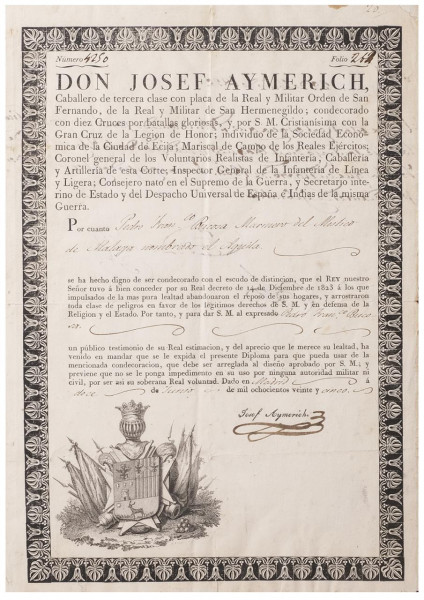 Número 4250 Folio 214
DON JOSEF AYMERICH,
Caballero de tercera clase con placa de la Real y Militar Orden de San
Fernando, de la Real y Militar de San Hermenegildo; condecorado
con diez Cruces por batallas gloriosas, y por S. M. Cristianísima con la
Gran Cruz de la Legion de Honor; individuo de la Sociedad Econó-
mica de la Ciudad de Ecija; Mariscal de Campo de los Reales Ejércitos;
Coronel general de los Voluntarios Realistas de Infantería, Caballería
y Artillería de esta Corte; Inspector General de la Infantería de Línea
y Ligera; Consejero nato en el Supremo de la Guerra, y Secretario inte-
rino de Estado y del Despacho Universal de España é Indias de la misma
Guerra.
Por cuanto Pedro Fran.co Marinero del Mistico
de Malaga nombrado el Aguila
se ha hecho digno de ser condecorado con el escudo de distincion, que el REY nuestro
Señor tuvo á bien conceder por su Real decreto de 14 de Diciembre de 1823 á los que
impulsados de la mas pura lealtad abandonaron el reposo de sus hogares, y arrostraron
toda clase de peligros en favor de los legítimos derechos de S. M. y en defensa de la
Religion y el Estado. Por tanto, y para dar S. M. al expresado Pedro Fran.co
un público testimonio de su Real estimacion, y del aprecio que le merece su lealtad, ha
venido en mandar que se le expida el presente Diploma para que pueda usar de la
mencionada condecoracion, que debe ser arreglada al diseño aprobado por S. M.; y
previene que no se le ponga impedimento en su uso por ninguna autoridad militar ni
civil, por ser así su soberana Real voluntad. Dado en Madrid á
doce de de mil ochocientos veinte y cinco.
Josef Aymerich